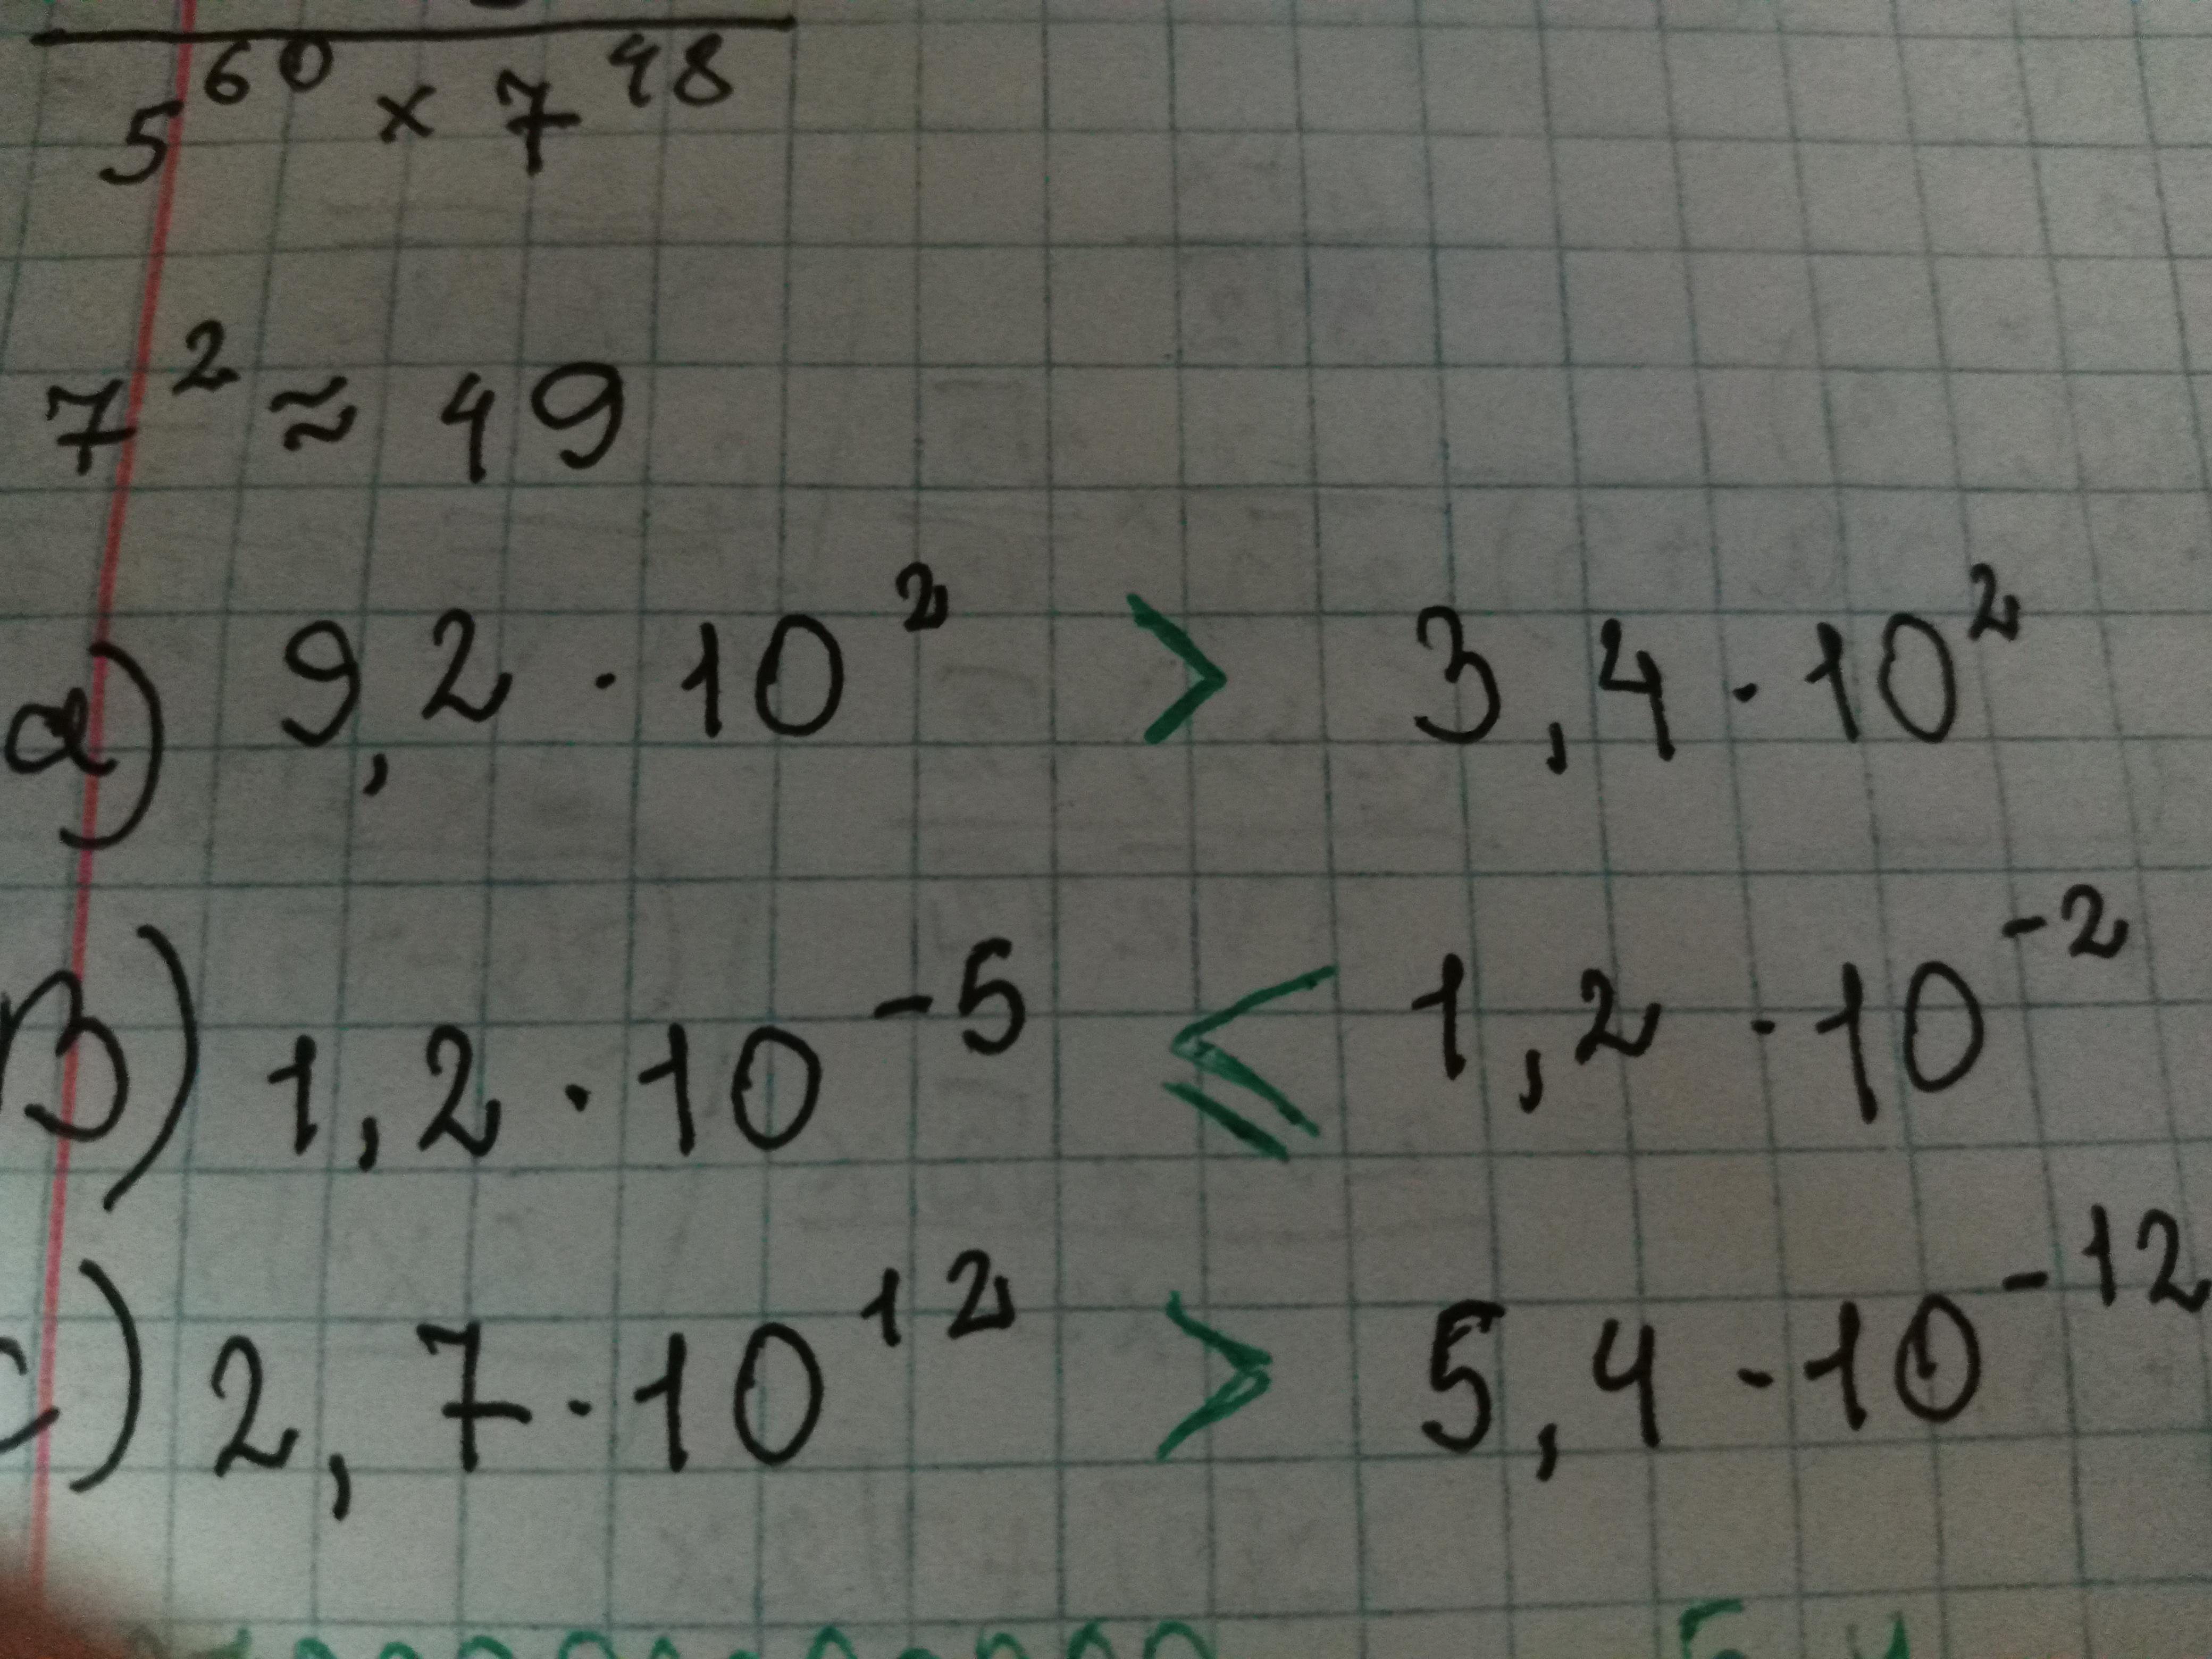 5^60 × 7^48
7^2 ≈ 49
a) 9,2 · 10^2 > 3,4 · 10^2
B) 1,2 · 10^-5 ⩽ 1,2 · 10^-2
c) 2,7 · 10^12 > 5,4 · 10^-12